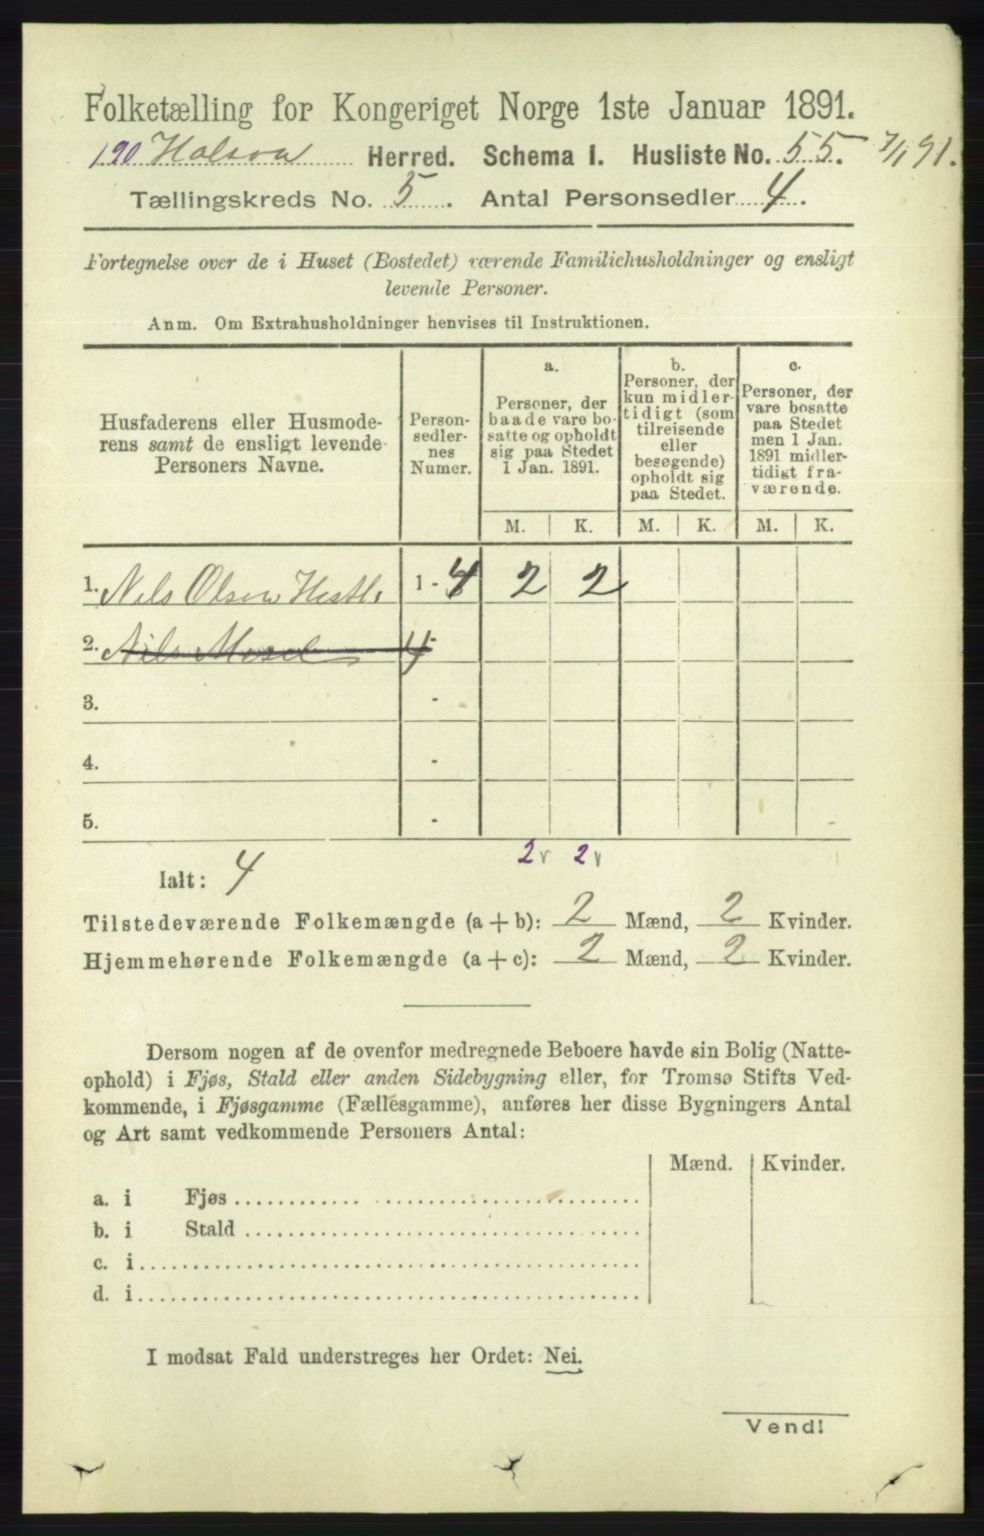 Folketælling for Kongeriget Norge 1ste Januar 1891.
190 Herred. Schema I. Husliste No. 55. 7/1 91.
Tællingskreds No. 5. Antal Personsedler 4.
Fortegnelse over de i Huset (Bostedet) værende Familiehusholdninger og ensligt
levende Personer.
Anm. Om Extrahusholdninger henvises til Instruktionen.
Husfaderens eller Husmode-
rens samt de ensligt levende
Personers Navne.
Person-
sedler-
nes
Numer.
a.
Personer, der
baade vare bo-
satte og opholdt
sig paa Stedet
1 Jan. 1891.
b.
Personer, der
kun midler-
tidigt (som
tilreisende
eller
besøgende)
opholdt sig
paa Stedet.
c.
Personer, der
vare bosatte
paa Stedet
men 1 Jan.
1891 midler-
tidigt fra-
værende.
M. K. M. K. M. K.
1. Nils Olsen 1 - 4 2 2
2. Nils 4 -
3. -
4. -
5. -
2 2
Ialt: 4
Tilstedeværende Folkemængde (a + b): 2 Mænd, 2 Kvinder.
Hjemmehørende Folkemængde (a + c): 2 Mænd, 2 Kvinder.
Dersom nogen af de ovenfor medregnede Beboere havde sin Bolig (Natte-
ophold) i Fjøs, Stald eller anden Sidebygning eller, for Tromsø Stifts Ved-
kommende, i Fjøsgamme (Fællesgamme), anføres her disse Bygningers Antal
og Art samt vedkommende Personers Antal:
Mænd. Kvinder.
a. i Fjøs
b. i Stald
c. i
d. i
I modsat Fald understreges her Ordet: Nei.
Vend!